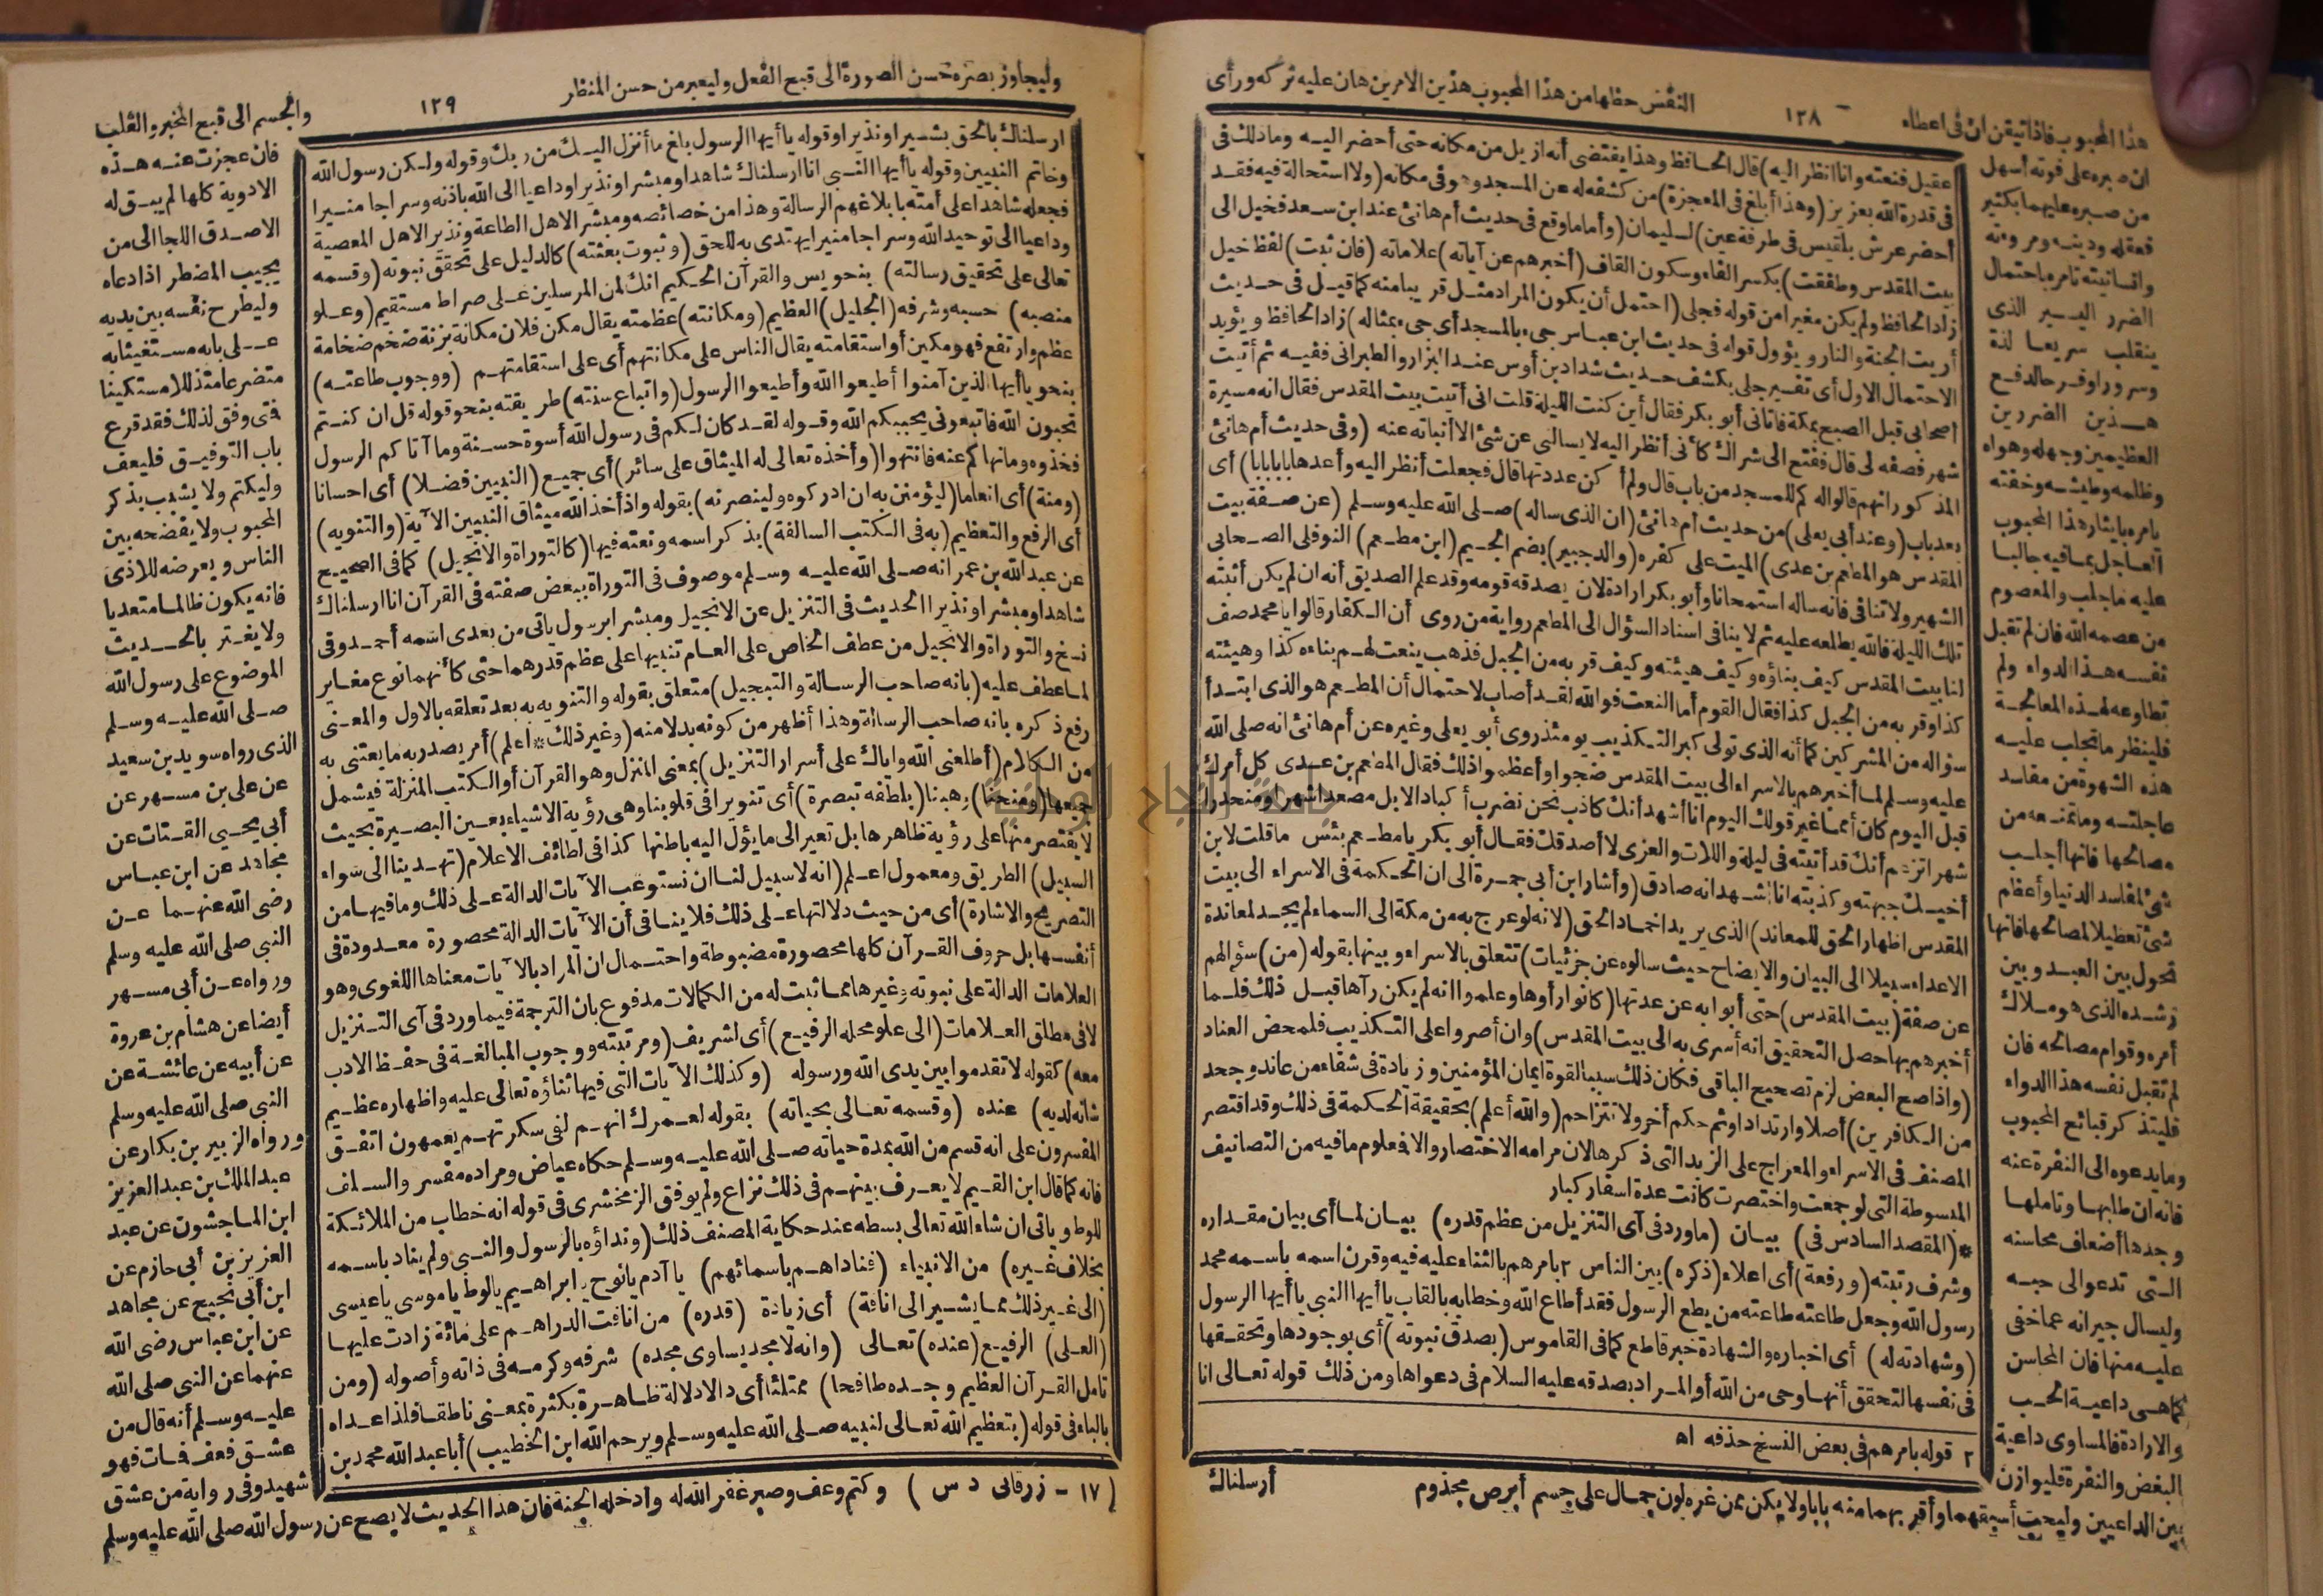 النفس حظها من هذا المحبوب هذين الامرين هان عليه تركه ورأى
١٢٨
هذا المحبوب فاذا تيقن ان فى اعطاء
عقيل فنعته وانا انظر اليه) قال الحافظ وهذا يقتضى أنه ازيل من مكانه حتى أحضر اليه وما ذلك فى
فى قدرة الله بعزيز (وهذا أبلغ فى المعجزة) من كشفه له عن المسجد وهو فى مكانه (ولا استحالة فيه فقد
أحضر عرش بلقيس فى طرفة عين) لسليمان (وأما ما وقع فى حديث أم هانئ عند ابن سعد فخيل الى
بيت المقدس وطفقت) بكسر الفاء وسكون القاف (أخبرهم عن آياته) علاماته (فان ثبت) لفظ خيل
زاد الحافظ ولم يكن مغيرا من قوله فجلى (احتمل أن يكون المراد مثل قريبا منه كما قيل فى حديث
أريت الجنة والنار ويؤول قوله فى حديث ابن عباس جىء بالمسجد أى جىء بمثاله) زاد الحافظ ويؤيد
الاحتمال الاول أى تفسير جلى بكشف حديث شداد بن أوس عند البزار والطبرانى ففيه ثم أتيت
أصحابى قبل الصبح بمكة فاتانى أبو بكر فقال أين كنت الليلة قلت انى أتيت بيت المقدس فقال انه مسيرة
شهر فصفه لى قال ففتح لى شراك كأنى أنظر اليه لا يسالنى عن شئ الا أنباته عنه (وفى حديث أم هانئ
المذكور انهم قالوا له كم للمسجد من باب قال ولم أكن عددتها قال فجعلت أنظر اليه وأعدها بابا بابا) أى
بعد باب (وعند أبى يعلى) من حديث أم هانئ (ان الذى ساله) صلى الله عليه وسلم (عن صفة بيت
المقدس هو المطعم بن عدى) الميت على كفره (والد جبير) بضم الجيم (ابن مطعم) النوفلى الصحابى
الشهير ولا تنافى فانه ساله استمحانا وأبو بكر ارادة لان يصدقه قومه وقد علم الصديق أنه ان لم يكن أثبته
تلك الليلة فالله يطلعه عليه ثم لا ينافى اسناد السؤال الى المطعم رواية من روى أن الكفار قالوا يا محمد صف
لنا بيت المقدس كيف بناؤه وكيف هيئته وكيف قربه من الجبل فذهب ينعت لهم بناءه كذا وهيئته
كذا وقربه من الجبل كذا فقال القوم أما النعت فوالله لقد أصاب لاحتمال أن المطعم هو الذى ابتدأ
سؤاله من المشركين كما أنه الذى تولى كبر التكذيب يومئذ روى أبو يعلى وغيره عن أم هانئ انه صلى الله
عليه وسلم لما أخبرهم بالاسراء الى بيت المقدس ضجوا وأعظموا ذلك فقال المطعم بن عدى كل أمرك
قبل اليوم كان أمما غير قولك اليوم انا أشهد أنك كاذب نحن نضرب أكباد الابل مصعدا شهرا ومنحدرا
شهرا تزعم أنك قد أتيته فى ليلة واللات والعزى لا أصدقك فقال أبو بكر يا مطعم بئس ما قلت لابن
أخيك جبهته وكذبته انا اشهد انه صادق (وأشار ابن أبى جمرة الى ان الحكمة فى الاسراء الى بيت
المقدس اظهار الحق للمعاند) الذى يريد اخماد الحق (لانه لو عرج به من مكة الى السماء لم يجد لمعاندة
الاعداء سبيلا الى البيان والايضاح حيث سالوه عن جزئيات) تتعلق بالاسراء وبينها بقوله (من) سؤالهم
عن صفة (بيت المقدس) حتى أبوابه عن عدتها (كانوا رأوها وعلموا انه لم يكن رآها قبل ذلك فلما
أخبرهم بها حصل التحقيق انه أسرى به الى بيت المقدس) وان أصروا على التكذيب فلمحض العناد
(واذا صح البعض لزم تصحيح الباقى فكان ذلك سببا لقوة ايمان المؤمنين وزيادة فى شقاء من عاند وجحد
من الكافرين) أصلا وارتدادا وثم حكم أخر ولا تتزاحم (والله أعلم) بحقيقة الحكمة فى ذلك وقد اقتصر
المصنف فى الاسراء والمعراج على الزبد التى ذكرها لان مرامه الاختصار والا فمعلوم ما فيه من التصانيف
المبسوطة التى لو جمعت واختصرت كانت عدة اسفار كبار
*(المقصد السادس فى) بيان (ما ورد فى آى التنزيل من عظم قدره) بيان لما أى بيان مقداره
وشرف رتبته (ورفعة) أى اعلاء (ذكره) بين الناس ٢ بامرهم بالثناء عليه فيه وقرن اسمه باسمه محمد
رسول الله وجعل طاعته طاعته من يطع الرسول فقد أطاع الله وخطابه بالقاب يا أيها النبى يا أيها الرسول
(وشهادته له) أى اخباره والشهادة خبر قاطع كما فى القاموس (بصدق نبوته) أى بوجودها وتحققها
فى نفسها لتحقق أنها وحى من الله أو المراد بصدقه عليه السلام فى دعواها ومن ذلك قوله تعالى انا
٢ قوله بامرهم فى بعض النسخ حذفه اه
أرسلناك
ان صبره على فوته أسهل
من صبره عليهما بكثير
فعقله ودينه ومروءته
وانسانيته تامره باحتمال
الضرر اليسير الذى
ينقلب سريعا لذة
وسرورا وفرحا لدفع
هذين الضررين
العظيمين وجهله وهواه
وظلمه وطيشه وخفته
يامره بايثار هذا المحبوب
العاجل بما فيه جالبا
عليه ما جلب والمعصوم
من عصمه الله فان لم تقبل
نفسه هذا الدواء ولم
تطاوعه لهذه المعالجة
فلينظر ما تجلب عليه
هذه الشهوة من مفاسد
عاجلته وما تمنعه من
مصالحها فانها أجلب
شئ لمفاسد الدنيا وأعظم
شئ تعطيلا لمصالحها فانها
تحول بين العبد وبين
رشده الذى هو ملاك
أمره وقوام مصالحه فان
لم تقبل نفسه هذا الدواء
فليتذكر قبائح المحبوب
وما يدعوه الى النفرة عنه
فانه ان طلبها وتاملها
وجدها أضعاف محاسنه
التى تدعو الى حبه
وليسال جيرانه عما خفى
عليه منها فان المحاسن
كما هى داعية الحب
والارادة فالمساوى داعية
البغض والنفرة فليوازن
بين الداعيين وليحب أسبقهما وأقربهما منه بابا ولا يكن ممن غره لون جمال على جسم أبرص مجذوم
وليجاوز بصره حسن الصورة الى قبح الفعل وليعبر من حسن المنظر
١٢٩
والجسم الى قبح المخبر والقلب
ارسلناك بالحق بشيرا ونذيرا وقوله يا أيها الرسول بلغ ما أنزل اليك من ربك وقوله ولكن رسول الله
وخاتم النبيين وقوله يا أيها النبى انا ارسلناك شاهدا ومبشرا ونذيرا وداعيا الى الله باذنه وسراجا منيرا
فجعله شاهدا على أمته بابلاغهم الرسالة وهذا من خصائصه ومبشر الاهل الطاعة ونذير الاهل المعصية
وداعيا الى توحيد الله وسراجا منيرا يهتدى به للحق (وثبوت بعثته) كالدليل على تحقق نبوته (وقسمه
تعالى على تحقيق رسالته) بنحو يس والقرآن الحكيم انك لمن المرسلين على صراط مستقيم (وعلو
منصبه) حسبه وشرفه (الجليل) العظيم (ومكانته) عظمته يقال مكن فلان مكانة بزنة ضخم ضخامة
عظم وارتفع فهو مكين أو استقامته يقال الناس على مكانتهم أى على استقامتهم (ووجوب طاعته)
بنحو يا أيها الذين آمنوا أطيعوا الله وأطيعوا الرسول (واتباع سنته) طريقته بنحو قوله قل ان كنتم
تحبون الله فاتبعونى يحببكم الله وقوله لقد كان لكم فى رسول الله أسوة حسنة وما آتاكم الرسول
فخذوه وما نهاكم عنه فانتهوا (وأخذه تعالى له الميثاق على سائر) أى جميع (النبيين فضلا) أى احسانا
(ومنة) أى انعاما (ليؤمنن به ان ادركوه ولينصرنه) بقوله واذ أخذ الله ميثاق النبيين الآية (والتنويه)
أى الرفع والتعظيم (به فى الكتب السالفة) بذكر اسمه ونعته فيها (كالتوراة والانجيل) كما فى الصحيح
عن عبد الله بن عمر انه صلى الله عليه وسلم موصوف فى التوراة ببعض صفته فى القرآن انا ارسلناك
شاهدا ومبشرا ونذيرا الحديث فى التنزيل عن الانجيل ومبشرا برسول ياتى من بعدى اسمه أحمد وفى
نسخ والتوراة والانجيل من عطف الخاص على العام تنبيها على عظم قدرهما حتى كأنهما نوع مغاير
لما عطف عليه (بانه صاحب الرسالة والتبجيل) متعلق بقوله والتنويه به بعد تعلقه بالاول والمعنى
رفع ذكره بانه صاحب الرسالة وهذا أظهر من كونه بدلا منه (وغير ذلك * اعلم) أمر يصدر به ما يعتنى به
من الكلام (أطلعنى الله واياك على أسرار التنزيل) بمعنى المنزل وهو القرآن أو الكتب المنزلة فيشمل
جميعها (ومنحنا) وهبنا (بلطفه تبصرة) أى تنويرا فى قلوبنا وهى رؤية الاشياء بعين البصيرة بحيث
لا يقتصر منها على رؤية ظاهرها بل تعبر الى ما يؤل اليه باطنها كذا فى لطائف الاعلام (تهدينا الى سواء
السبيل) الطريق ومعمول اعلم (انه لا سبيل لنا ان نستوعب الآيات الدالة على ذلك وما فيها من
التصريح والاشارة) أى من حيث دلالتها على ذلك فلا ينافى أن الآيات الدالة محصورة معدودة فى
أنفسها بل حروف القرآن كلها محصورة مضبوطة واحتمال ان المراد بالآيات معناها اللغوى وهو
العلامات الدالة على نبوته وغيرها مما ثبت له من الكمالات مدفوع بان الترجمة فيما ورد فى آى التنزيل
لا فى مطلق العلامات (الى علو محله الرفيع) أى الشريف (ومرتبته ووجوب المبالغة فى حفظ الادب
معه) كقوله لا تقدموا بين يدى الله ورسوله (وكذلك الآيات التى فيها ثناؤه تعالى عليه واظهاره عظيم
شانه لديه) عنده (وقسمه تعالى بحياته) بقوله لعمرك انهم لفى سكرتهم يعمهون اتفق
المفسرون على انه قسم من الله بمدة حياته صلى الله عليه وسلم حكاه عياض ومراده مفسرو السلف
فانه كما قال ابن القيم لا يعرف بينهم فى ذلك نزاع ولم يوفق الزمخشرى فى قوله انه خطاب من الملائكة
للوط وياتى ان شاء الله تعالى بسطه عند حكاية المصنف ذلك (ونداؤه بالرسول والنبى ولم يناد باسمه
بخلاف غيره) من الانبياء (فناداهم باسمائهم) يا آدم يا نوح يا ابراهيم يا لوط يا موسى يا عيسى
(الى غير ذلك مما يشير الى انافة) أى زيادة (قدره) من انافت الدراهم على مائة زادت عليها
(العلى) الرفيع (عنده) تعالى (وانه لا مجد يساوى مجده) شرفه وكرمه فى ذاته وأصوله (ومن
تامل القرآن العظيم وجده طافحا) ممتلئا أى دالا دلالة ظاهرة بكثرة بمعنى ناطقا فلذا عداه
بالباء فى قوله (بتعظيم الله تعالى لنبيه صلى الله عليه وسلم ويرحم الله ابن الخطيب) أبا عبد الله محمد بن
(١٧ - زرقانى د س)
فان عجزت عنه هذه
الادوية كلها لم يبق له
الا صدق اللجا الى من
يجيب المضطر اذا دعاه
وليطرح نفسه بين يديه
على بابه مستغيثا به
متضرعا متذللا مستكينا
فتى وفق لذلك فقد قرع
باب التوفيق فليعف
وليكتم ولا يشبب بذكر
المحبوب ولا يفضحه بين
الناس ويعرضه للاذى
فانه يكون ظالما متعديا
ولا يغتر بالحديث
الموضوع على رسول الله
صلى الله عليه وسلم
الذى رواه سويد بن سعيد
عن على بن مسهر عن
أبى يحيى القتات عن
مجاهد عن ابن عباس
رضى الله عنهما عن
النبى صلى الله عليه وسلم
ورواه عن أبى مسهر
أيضا عن هشام بن عروة
عن أبيه عن عائشة عن
النبى صلى الله عليه وسلم
ورواه الزبير بن بكار عن
عبد الملك بن عبد العزيز
ابن الماجشون عن عبد
العزيز بن أبى حازم عن
ابن أبى نجيح عن مجاهد
عن ابن عباس رضى الله
عنهما عن النبى صلى الله
عليه وسلم أنه قال من
عشق فعف فمات فهو
شهيد وفى رواية من عشق
وكتم وعف وصبر غفر الله له وأدخله الجنة فان هذا الحديث لا يصح عن رسول الله صلى الله عليه وسلم